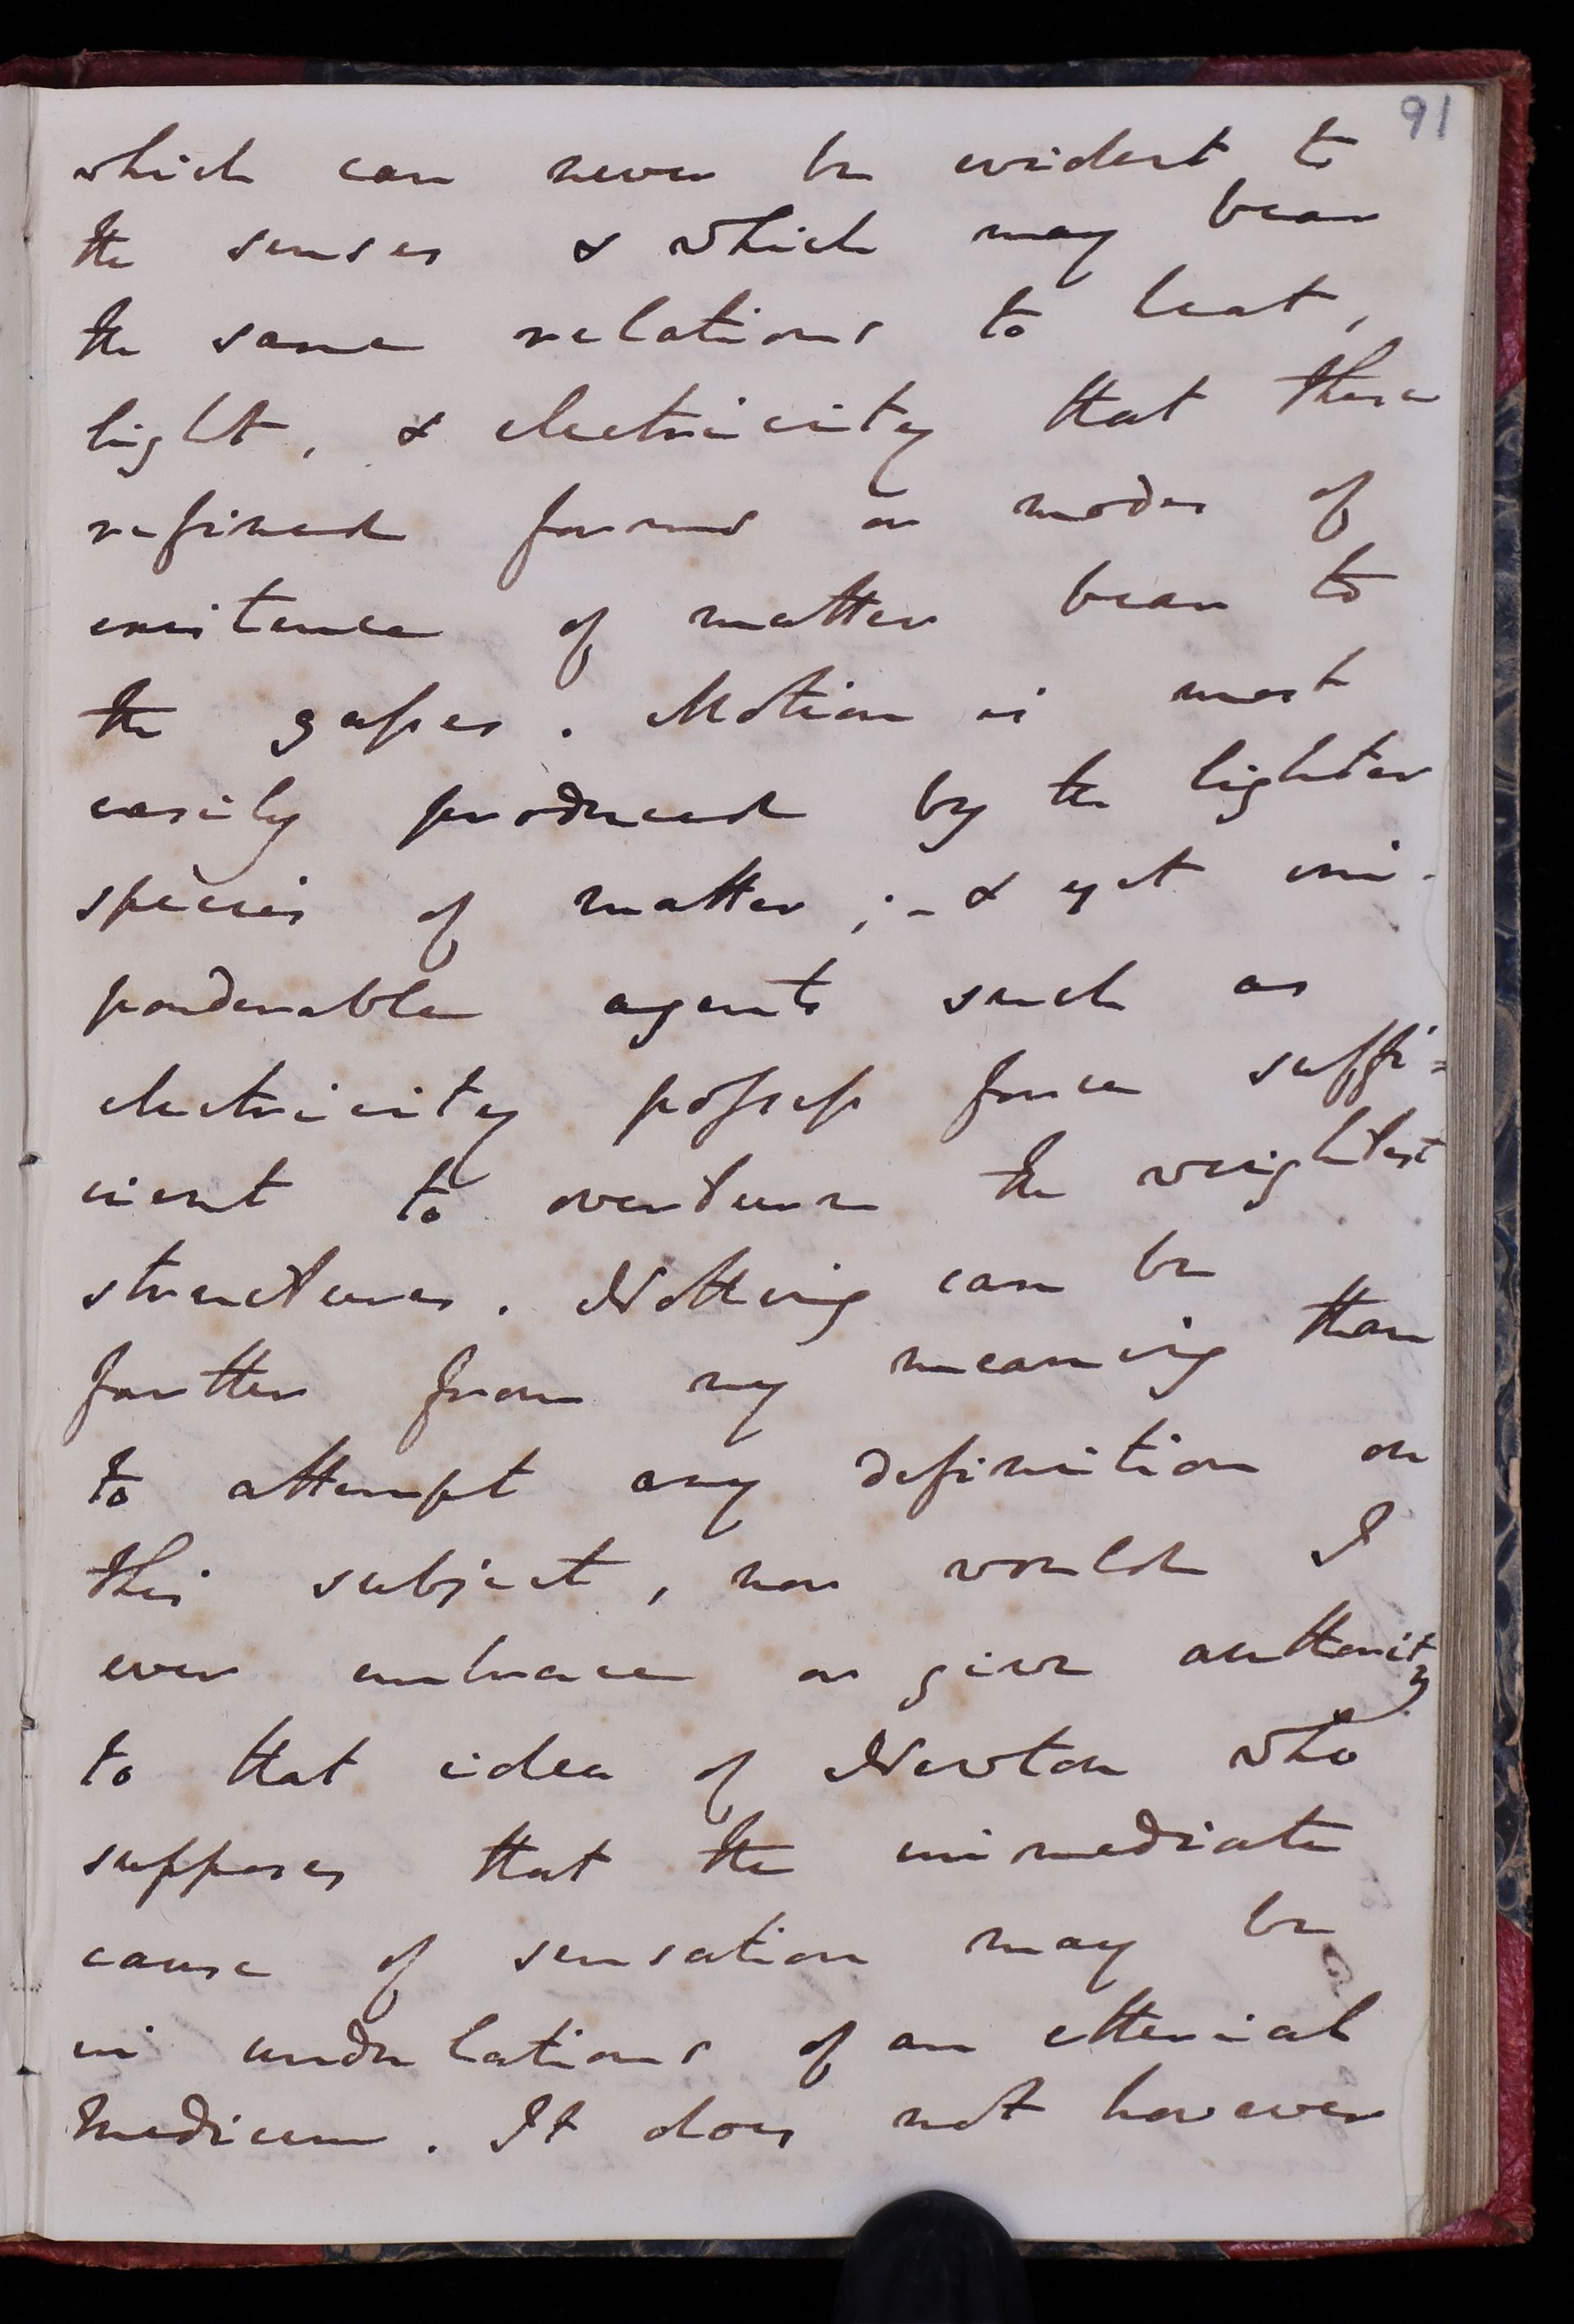 91
which can never be evident to
the senses & which may bear
the same relations to heat,
light, & electricity that these
refined forms or modes of
existence of matter bear to
the gasses. Motion is most
easily produced by the lighter
species of matter ;- & yet im-
ponderable agents such as
electricity possess force suffi=
cient to overturn the weightiest
structures. Nothing can be
farther from my meaning than
to attempt any definition on
this subject, nor would I
ever embrace or give authority
to that idea of Newton who
supposes that the immediate
cause of sensation may be
in undulations of an etherial
Medium. It does not however